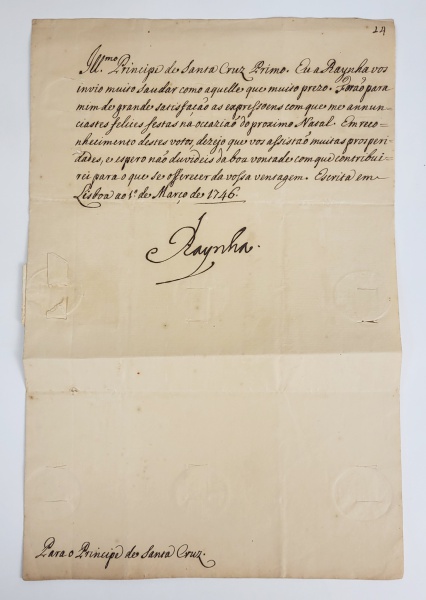 24
Ill.mo Principe de Santa Cruz Primo. Eu a Raynha vos
invio muito saudar como aquelle que muito prezo. Forão para
mim de grande satisfacão as expressoens com que me annun-
ciastes felices festas na ocazião do proximo Natal. Em reco=
nhecimento desses votos, dezejo que vos assistão muitas prosperi-
dades, e espero não duvideis da boa vontade com que contribui-
rei para o que se offerecer da vossa ventagem. Escrita em
Lisboa ao 1.º de Março de 1746.
Raynha.
Para o Principe de Santa Cruz.